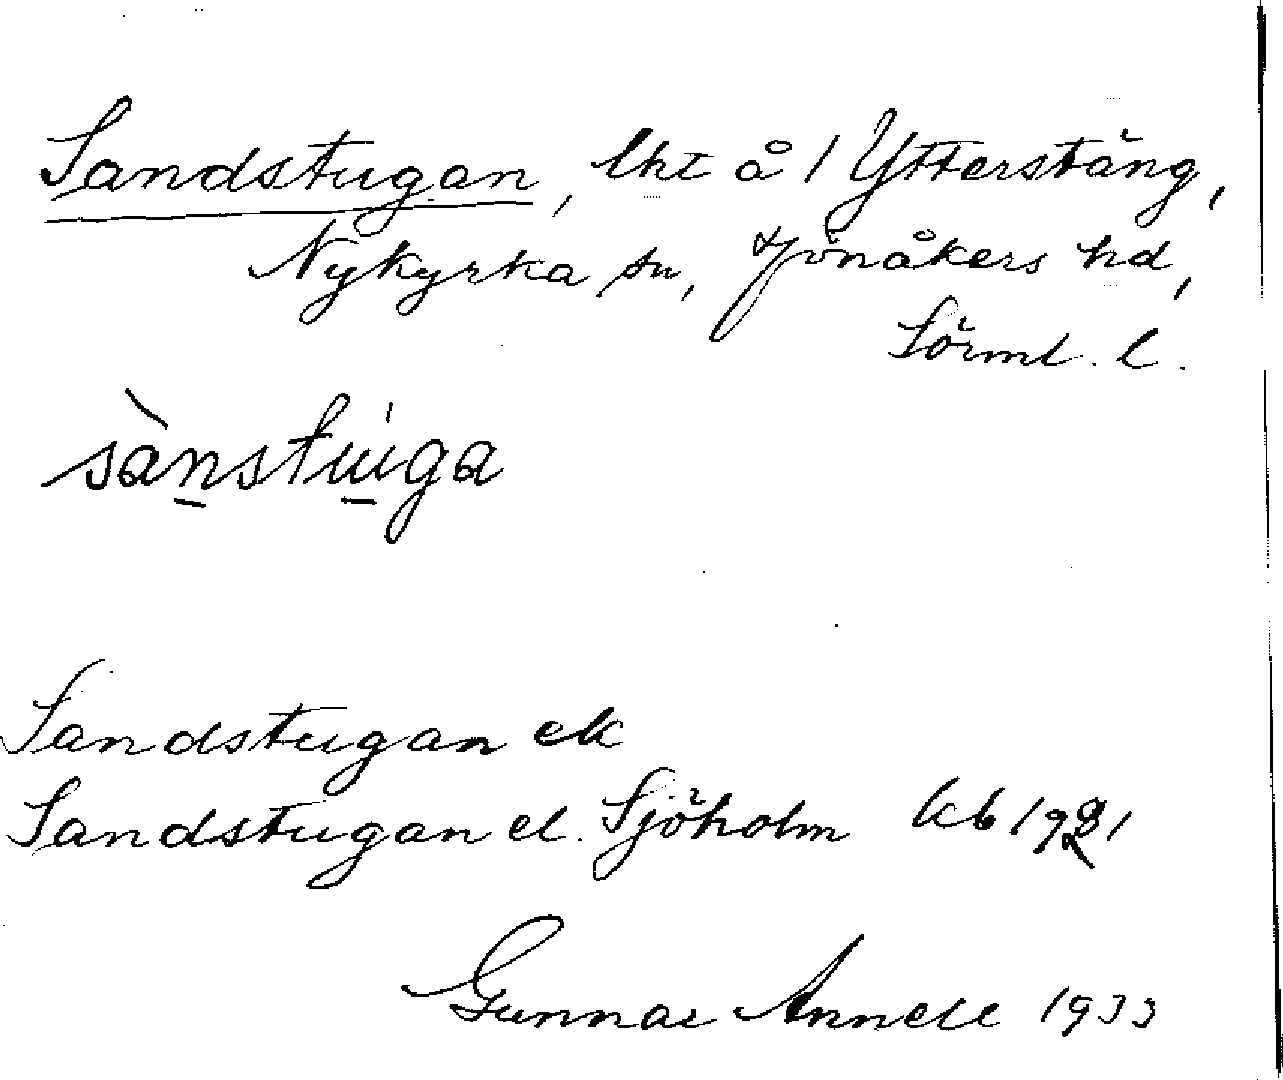 Sandstugan, lht å 1 Ytterstäng,
Nykyrka sn, Jönåkers hd,
Sörml. l.
sànstu̱ga
Sandstugan ek
Sandstugan el. Sjöholm kb 1921
Gunnar Annell 1933